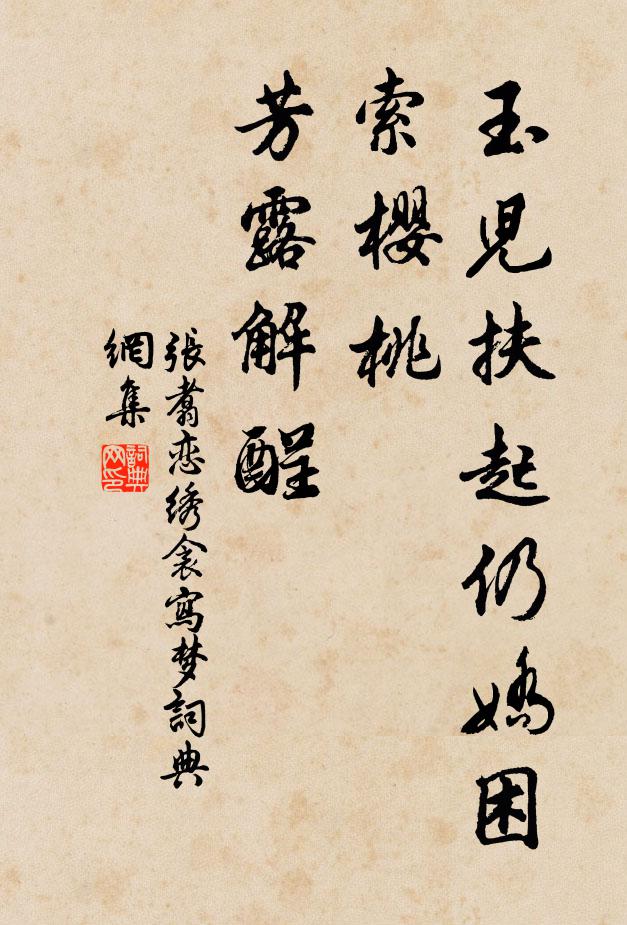 玉兒扶起仍嬌困
索櫻桃
芳露解酲
張翥恋绣衾寫梦詞典
網集
詞典網印